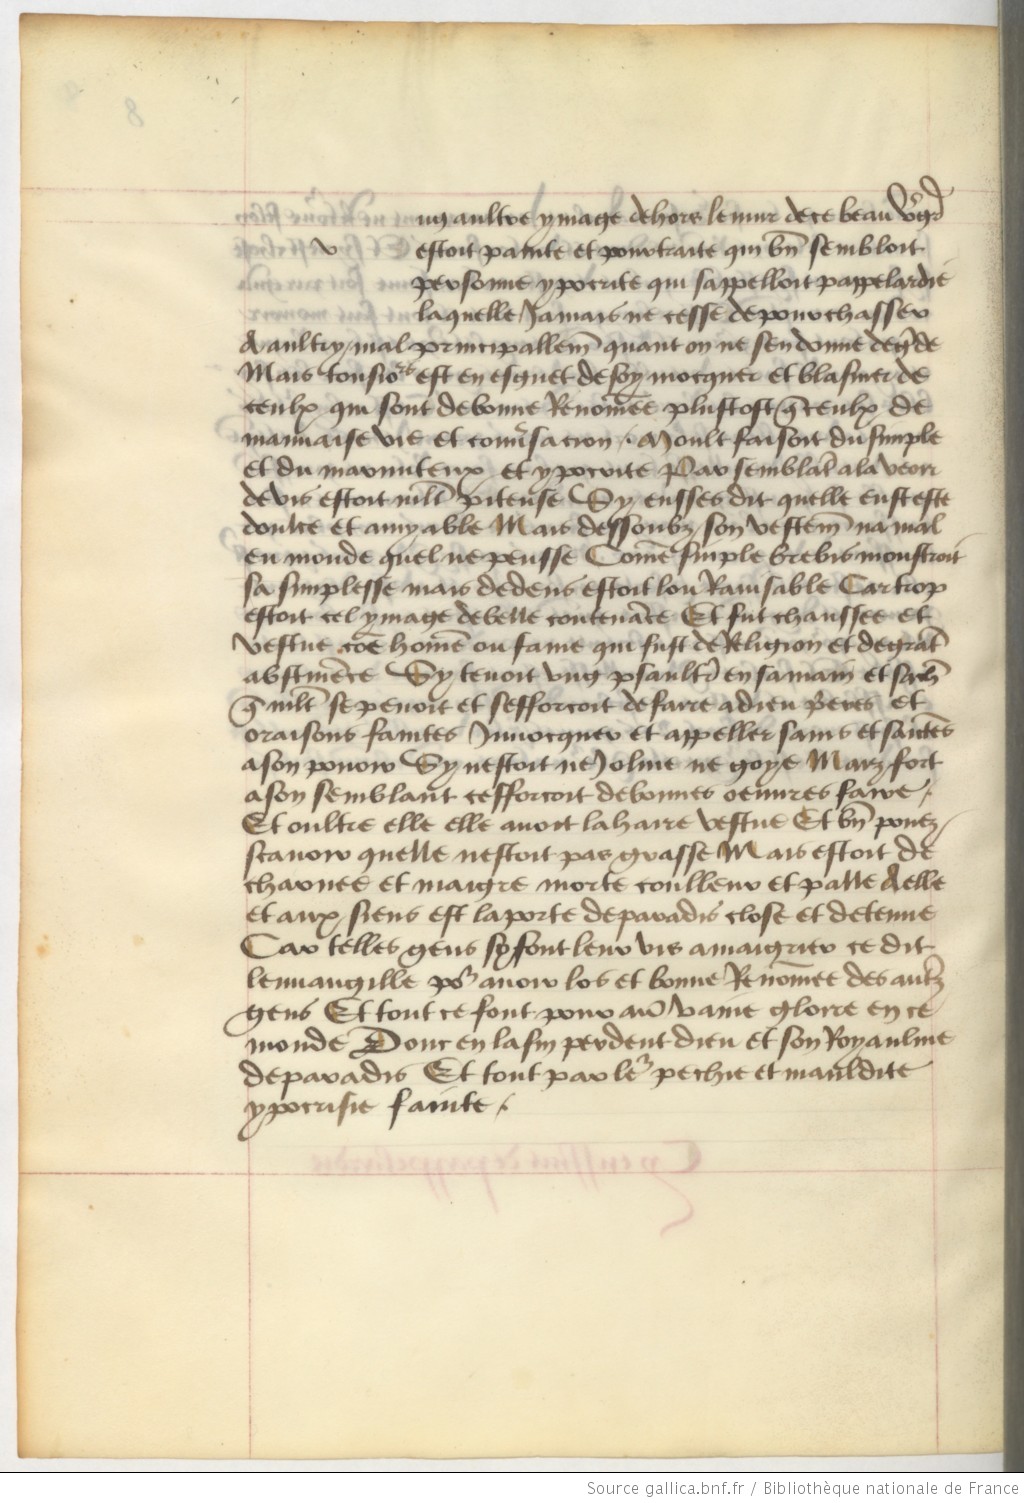 ng aultre ymage dehors le mur de ce beau v̾g̾r
v estoit painte et pourtraite qui bn̄ sembloit
personne ypocrite qui sappelloit pappelardie
laquelle Jamais ne cesse de pourchasser
A aultry mal principallem̄ quant on ne sen donne
Mais tousio⁹rs est en esguet de soy mocquer et blasmer de
ceulx qui sont de bonne Renōmee plustost q̄ ceulx de
mauuaise vie et conu̾sacion . Moult faisoit du simple
et du marmiteux et ypocrite Par semblāt a la veoir
de vis estoit mlt̄ piteuse Sy eusses dit quelle eust este
doulce et amyable Mais dessoubz son vestem̄ na mal
en monde quel ne peusse Comē simple brebis monstroit
sa simplesse mais dedens estoit lou Rauisable Car trop
estoit cel ymage de belle contenāce Et fut chaussee et
vestue cōe homē ou fame qui fust de Religion et de grāt
abstinēce Sy tenoit vng psaultr̾ en sa main et
q̄ mlt̄ se penoit et sefforcoit de faire a dieu p̾eres et
oraisons faintes Jnuocquer et appeller sains et saītes
a son pouoir Sy nestoit ne Jolie ne goye Maiz fort
a son semblant cefforcoit de bonnes oeuures faire .
Et oultre elle elle auoit la haire vestue Et bn̄ pouez
scauoir quelle nestoit pas grasse Mais estoit de
charnee et maigre morte coulleur et palle A elle
et aux siens est la porte de paradis close et detenue
Car telles gens sy font leur vis amaigrier ce dit
leuuangille po² auoir los et bonne Renōmee des autr̾z
gens Et tout ce font pour au̾ vaine gloire en ce
monde Donc en la fin perdent dieu et son Royaulme
de paradis Et tout par le² pechie et mauldite
ypocrisie fainte .
Source gallica.bnf.fr / Bibliothèque nationale de France